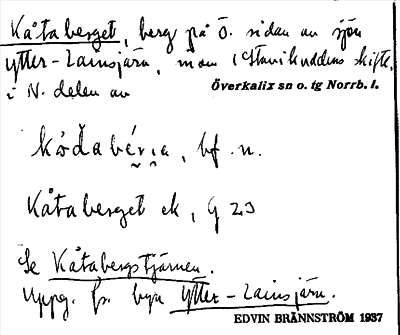 Kåtaberget, berg på Ö. sidan av sjön
Ytter-Lainsjärv, inom Stavikuddens skifte,
i N. delen av
Överkalix sn o. tg Norrb. l.
kóđabérıa, bf. n.
Kåtaberget ek, G 23
Se Kåtabergstjärnen.
Uppg. fr. byn Ytter-Lainsjärv.
EDVIN BRÄNNSTRÖM 1937